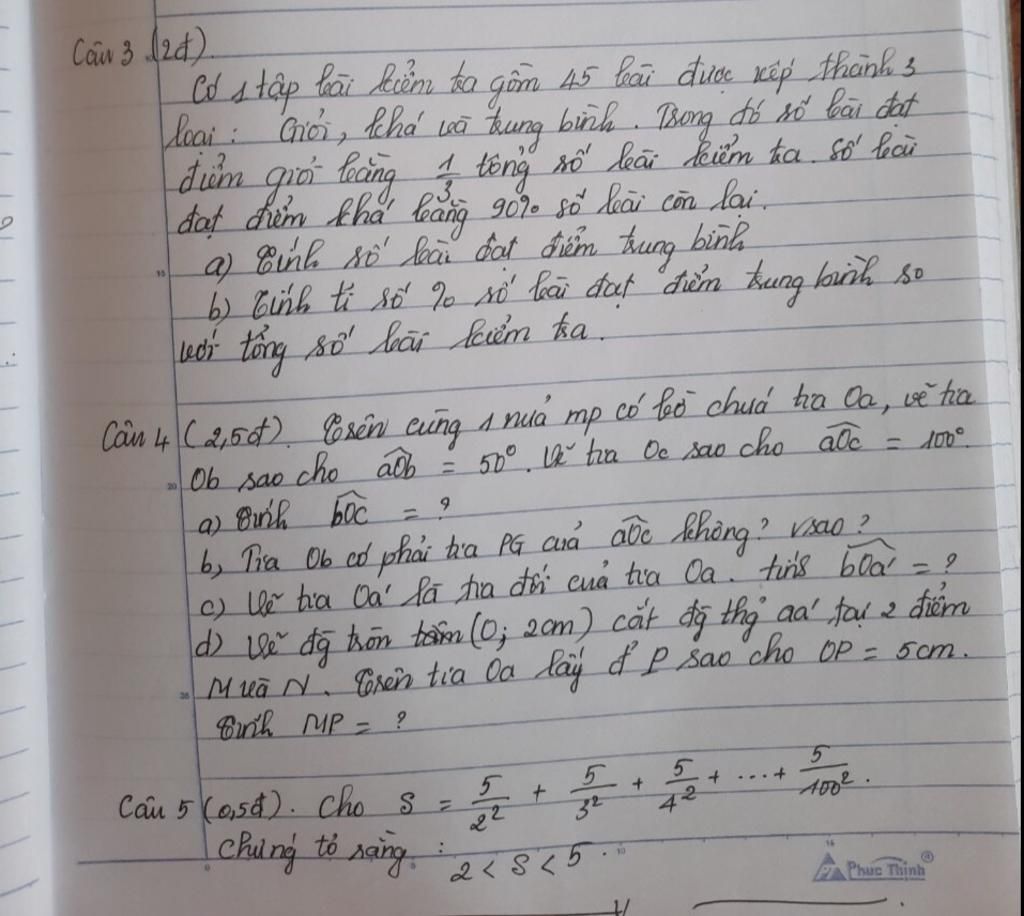 Câu 3 (2đ).
Có 1 tập bài kiểm tra gồm 45 bài được xếp thành 3
loại : Giỏi, khá và trung bình. Trong đó số bài đạt
điểm giỏi bằng 1/3 tổng số bài kiểm tra. Số bài
đạt điểm khá bằng 90% số bài còn lại.
a) Tính số bài đạt điểm trung bình
b) Tính tỉ số % số bài đạt điểm trung bình so
với tổng số bài kiểm tra.
Câu 4 (2,5đ). Trên cùng 1 nửa mp có bờ chứa tia Oa, vẽ tia
Ob sao cho aOb = 50°. Vẽ tia Oc sao cho aOc = 100°.
a) Tính bOc = ?
b, Tia Ob có phải tia PG của aOc không? Vsao?
c) Vẽ tia Oa' là tia đối của tia Oa. tính bOa' = ?
d) Vẽ đg tròn tâm (O; 2cm) cắt đg thg aa' tại 2 điểm
M và N. Trên tia Oa lấy đ' P sao cho OP = 5cm.
Tính MP = ?
Câu 5 (0,5đ). Cho S = 5/2² + 5/3² + 5/4² + ... + 5/100².
Chứng tỏ rằng : 2 < S < 5.
Phuc Thinh